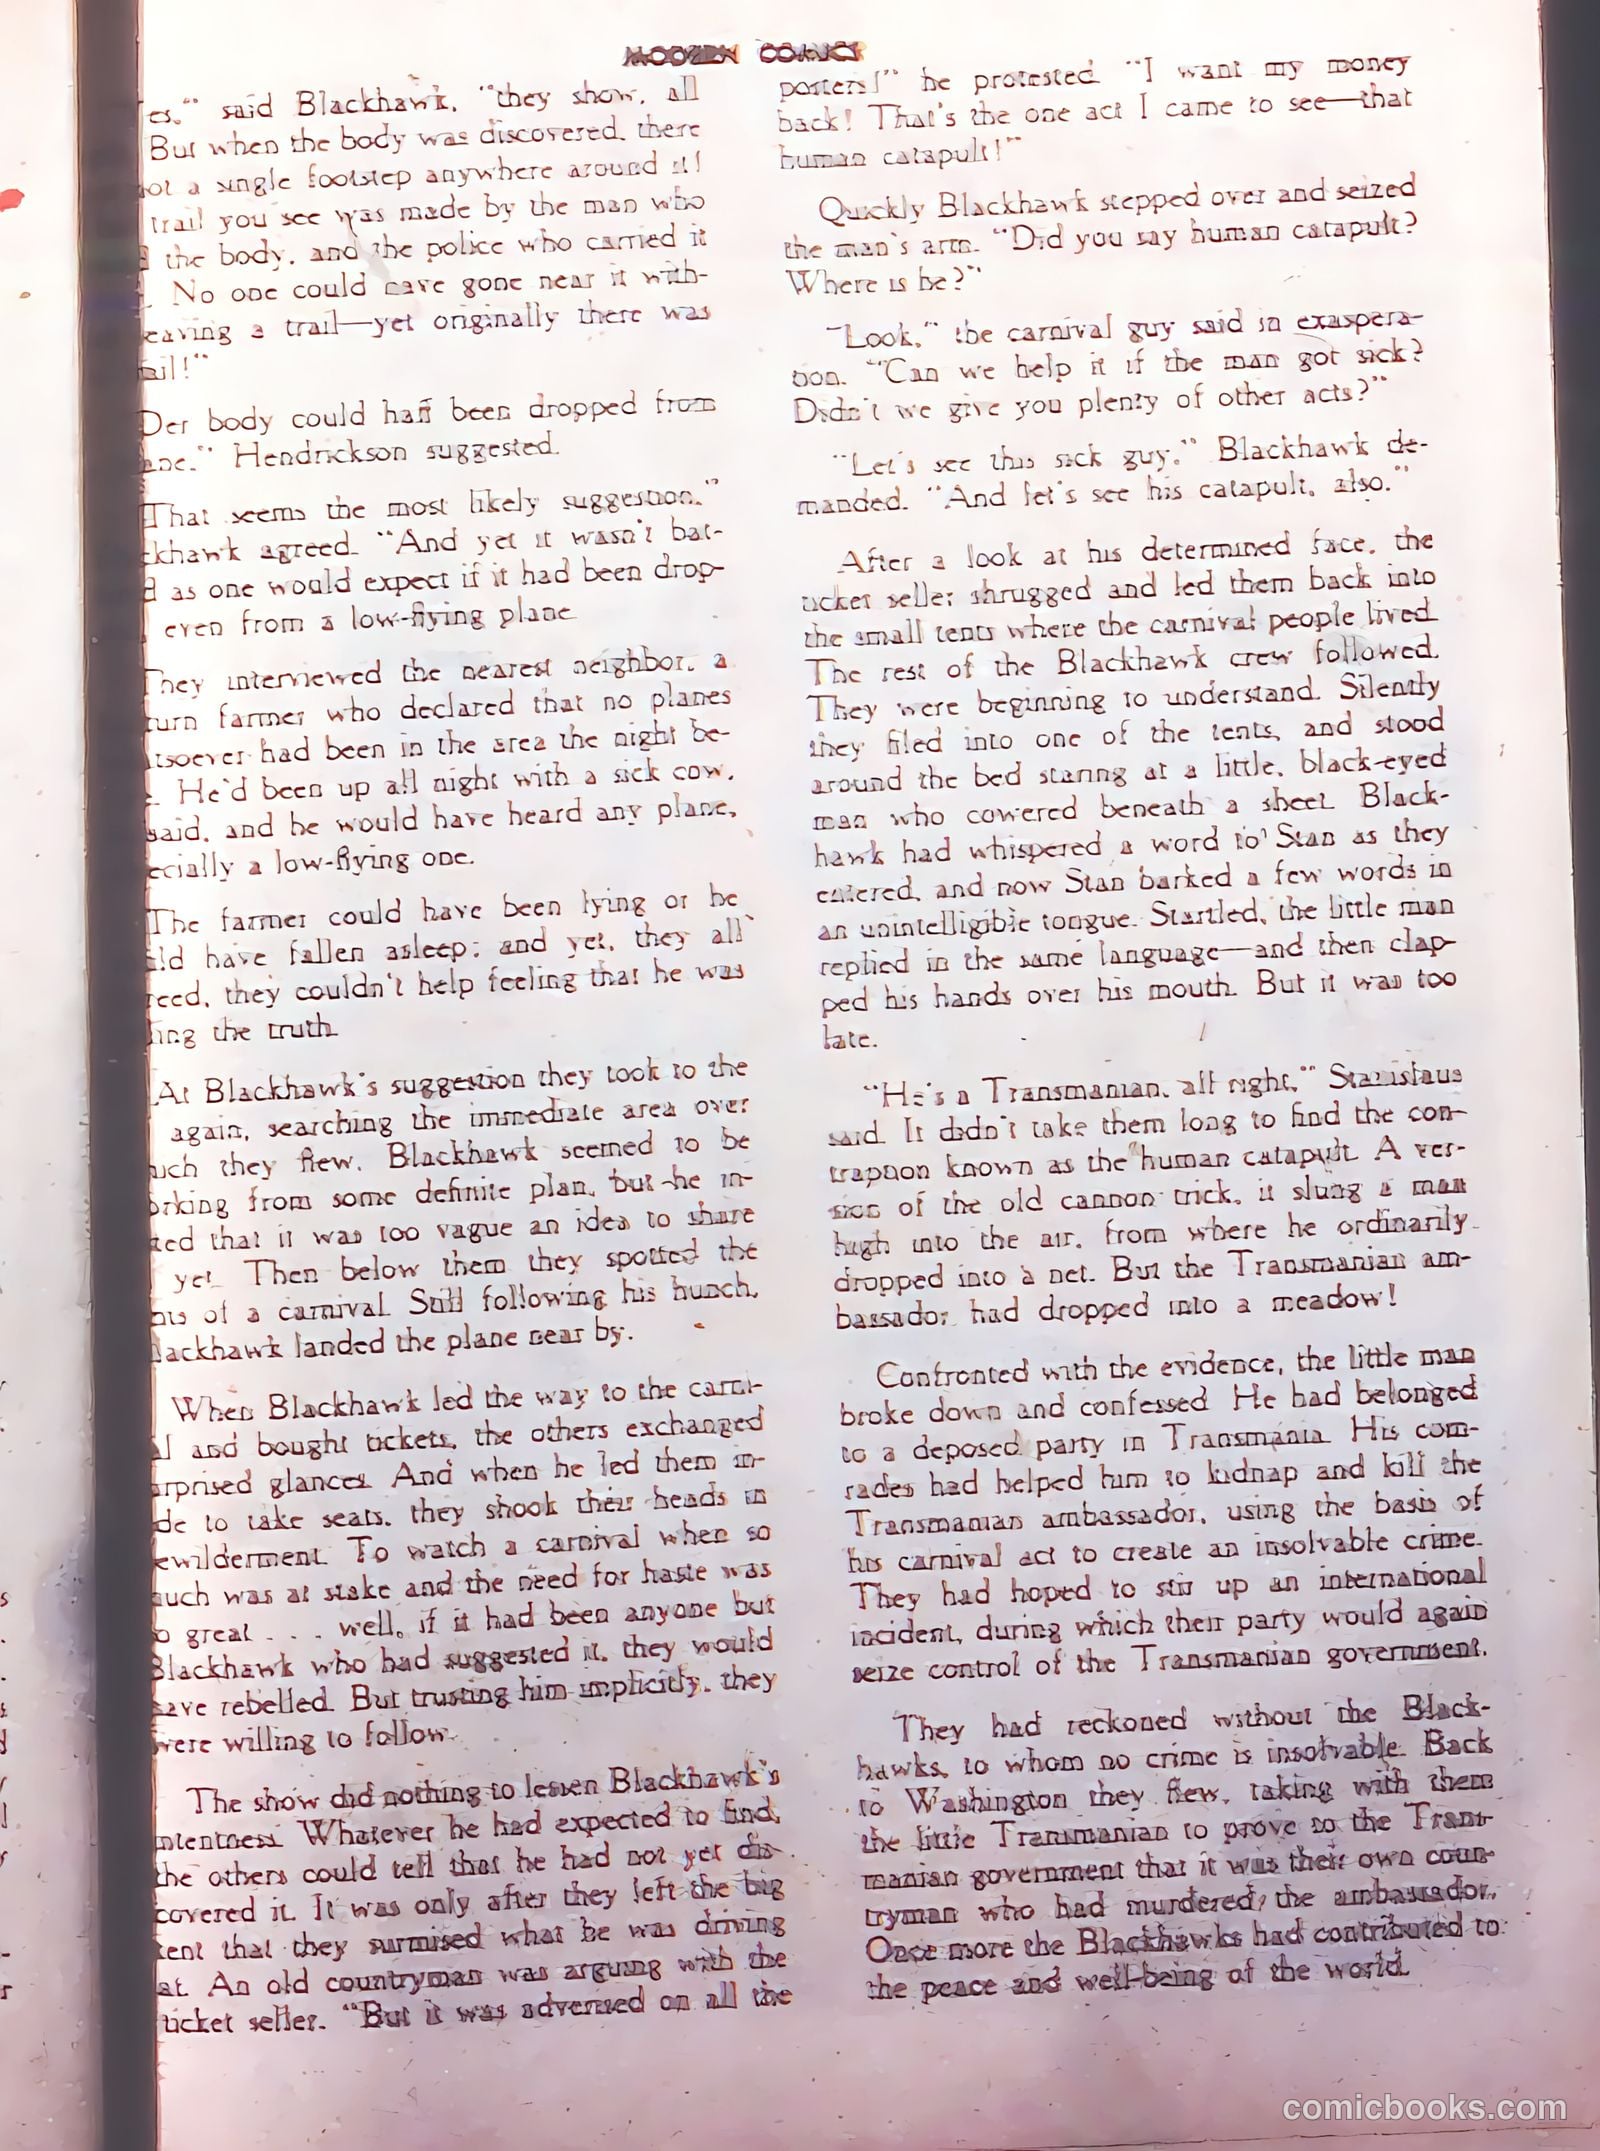 MODERN COMICS
es," said Blackhawk, "they show, all
But when the body was discovered, there
ot a single footstep anywhere around it!
trail you see was made by the man who
the body, and the police who carried it
. No one could have gone near it with-
eaving a trail—yet originally there was
ail!"
Der body could haff been dropped from
ane." Hendrickson suggested.
That seems the most likely suggestion."
ckhawk agreed. "And yet it wasn't bat-
d as one would expect if it had been drop-
even from a low-flying plane.
They interviewed the nearest neighbor, a
turn farmer who declared that no planes
tsoever had been in the area the night be-
. He'd been up all night with a sick cow,
said, and he would have heard any plane,
ecially a low-flying one.
The farmer could have been lying or he
ld have fallen asleep; and yet, they all
reed, they couldn't help feeling that he was
ling the truth.
At Blackhawk's suggestion they took to the
again, searching the immediate area over
uch they flew. Blackhawk seemed to be
orking from some definite plan, but he in-
ted that it was too vague an idea to share
yet. Then below them they spotted the
nts of a carnival. Still following his hunch,
lackhawk landed the plane near by.
When Blackhawk led the way to the carni-
al and bought tickets, the others exchanged
urprised glances. And when he led them in-
de to take seats, they shook their heads in
ewilderment. To watch a carnival when so
uch was at stake and the need for haste was
o great . . . well, if it had been anyone but
Blackhawk who had suggested it, they would
have rebelled. But trusting him implicitly, they
were willing to follow.
The show did nothing to lessen Blackhawk's
ntentness. Whatever he had expected to find,
the others could tell that he had not yet dis-
covered it. It was only after they left the big
tent that they surmised what he was driving
at. An old countryman was arguing with the
ticket seller. "But it was advertised on all the
posters!" he protested. "I want my money
back! That's the one act I came to see—that
human catapult!"
Quickly Blackhawk stepped over and seized
the man's arm. "Did you say human catapult?
Where is he?"
"Look," the carnival guy said in exaspera-
tion. "Can we help it if the man got sick?
Didn't we give you plenty of other acts?"
"Let's see this sick guy," Blackhawk de-
manded. "And let's see his catapult, also."
After a look at his determined face, the
ticket seller shrugged and led them back into
the small tents where the carnival people lived.
The rest of the Blackhawk crew followed.
They were beginning to understand. Silently
they filed into one of the tents, and stood
around the bed staring at a little, black-eyed
man who cowered beneath a sheet. Black-
hawk had whispered a word to Stan as they
entered, and now Stan barked a few words in
an unintelligible tongue. Startled, the little man
replied in the same language—and then clap-
ped his hands over his mouth. But it was too
late.
"He's a Transmanian, all right," Stanislaus
said. It didn't take them long to find the con-
traption known as the human catapult. A ver-
sion of the old cannon trick, it slung a man
high into the air, from where he ordinarily
dropped into a net. But the Transmanian am-
bassador had dropped into a meadow!
Confronted with the evidence, the little man
broke down and confessed. He had belonged
to a deposed party in Transmania. His com-
rades had helped him to kidnap and kill the
Transmanian ambassador, using the basis of
his carnival act to create an insolvable crime.
They had hoped to stir up an international
incident, during which their party would again
seize control of the Transmanian government.
They had reckoned without the Black-
hawks, to whom no crime is insolvable. Back
to Washington they flew, taking with them
the little Transmanian to prove to the Trans-
manian government that it was their own coun-
tryman who had murdered the ambassador.
Once more the Blackhawks had contributed to
the peace and well-being of the world.
comicbooks.com